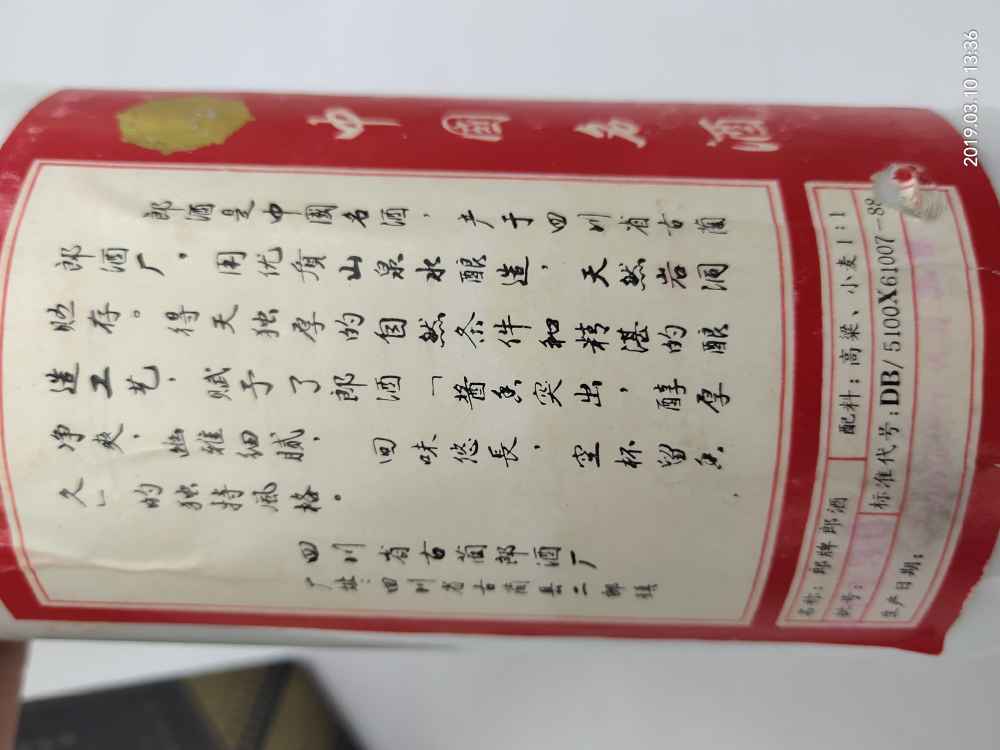 中国名酒
郎酒是中國名酒，产于四川省古蔺
郎酒厂，用优质山泉水酿造，天然岩洞
贮存。得天独厚的自然条件和精湛的酿
造工艺，赋予了郎酒「酱香突出，醇厚
净爽，幽雅细腻，回味悠長，空杯留香
久」的独持風格。
四川省古蔺郎酒厂
厂址：四川省古蔺县二郎镇
名称：郎牌郎酒
配料：高粱、小麦1:1
批号：
标准代号：DB/5100X61007-88
生产日期：
2019.03.10 13:36